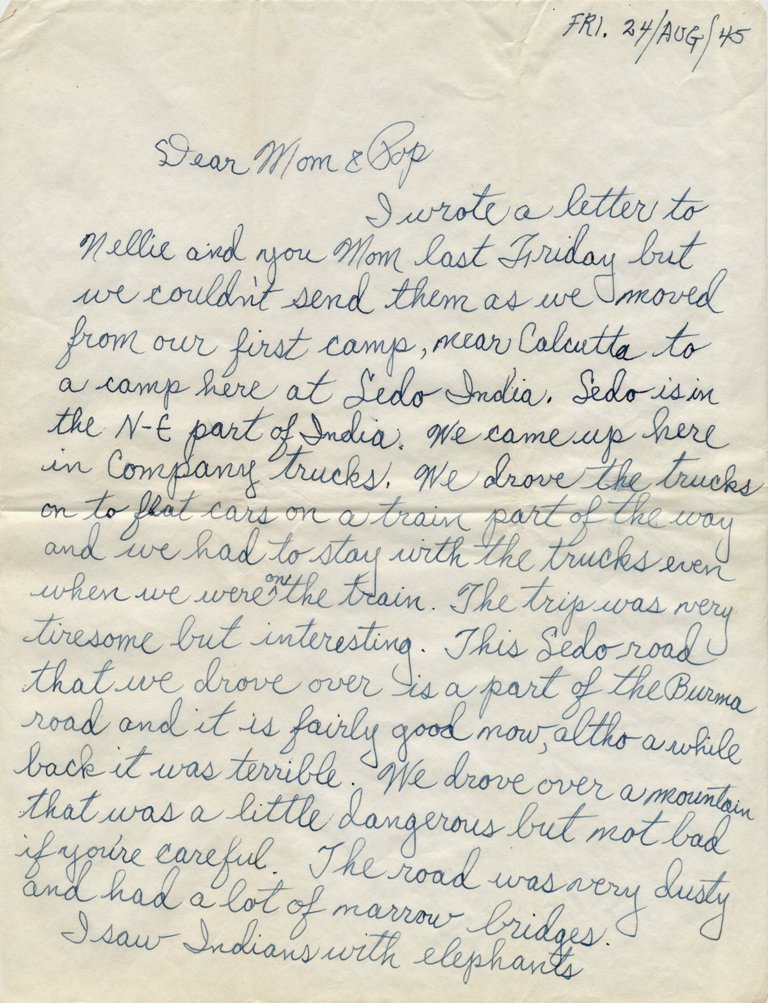 FRI. 24/AUG/45
Dear Mom & Pop
I wrote a letter to
Nellie and you Mom last Friday but
we couldn't send them as we moved
from our first camp, near Calcutta to
a camp here at Ledo India. Ledo is in
the N-E part of India. We came up here
in Company trucks. We drove the trucks
on to flat cars on a train part of the way
and we had to stay with the trucks even
when we were on the train. The trip was very
tiresome but interesting. This Ledo road
that we drove over is a part of the Burma
road and it is fairly good now, altho a while
back it was terrible. We drove over a mountain
that was a little dangerous but not bad
if you're careful. The road was very dusty
and had a lot of narrow bridges.
I saw Indians with elephants